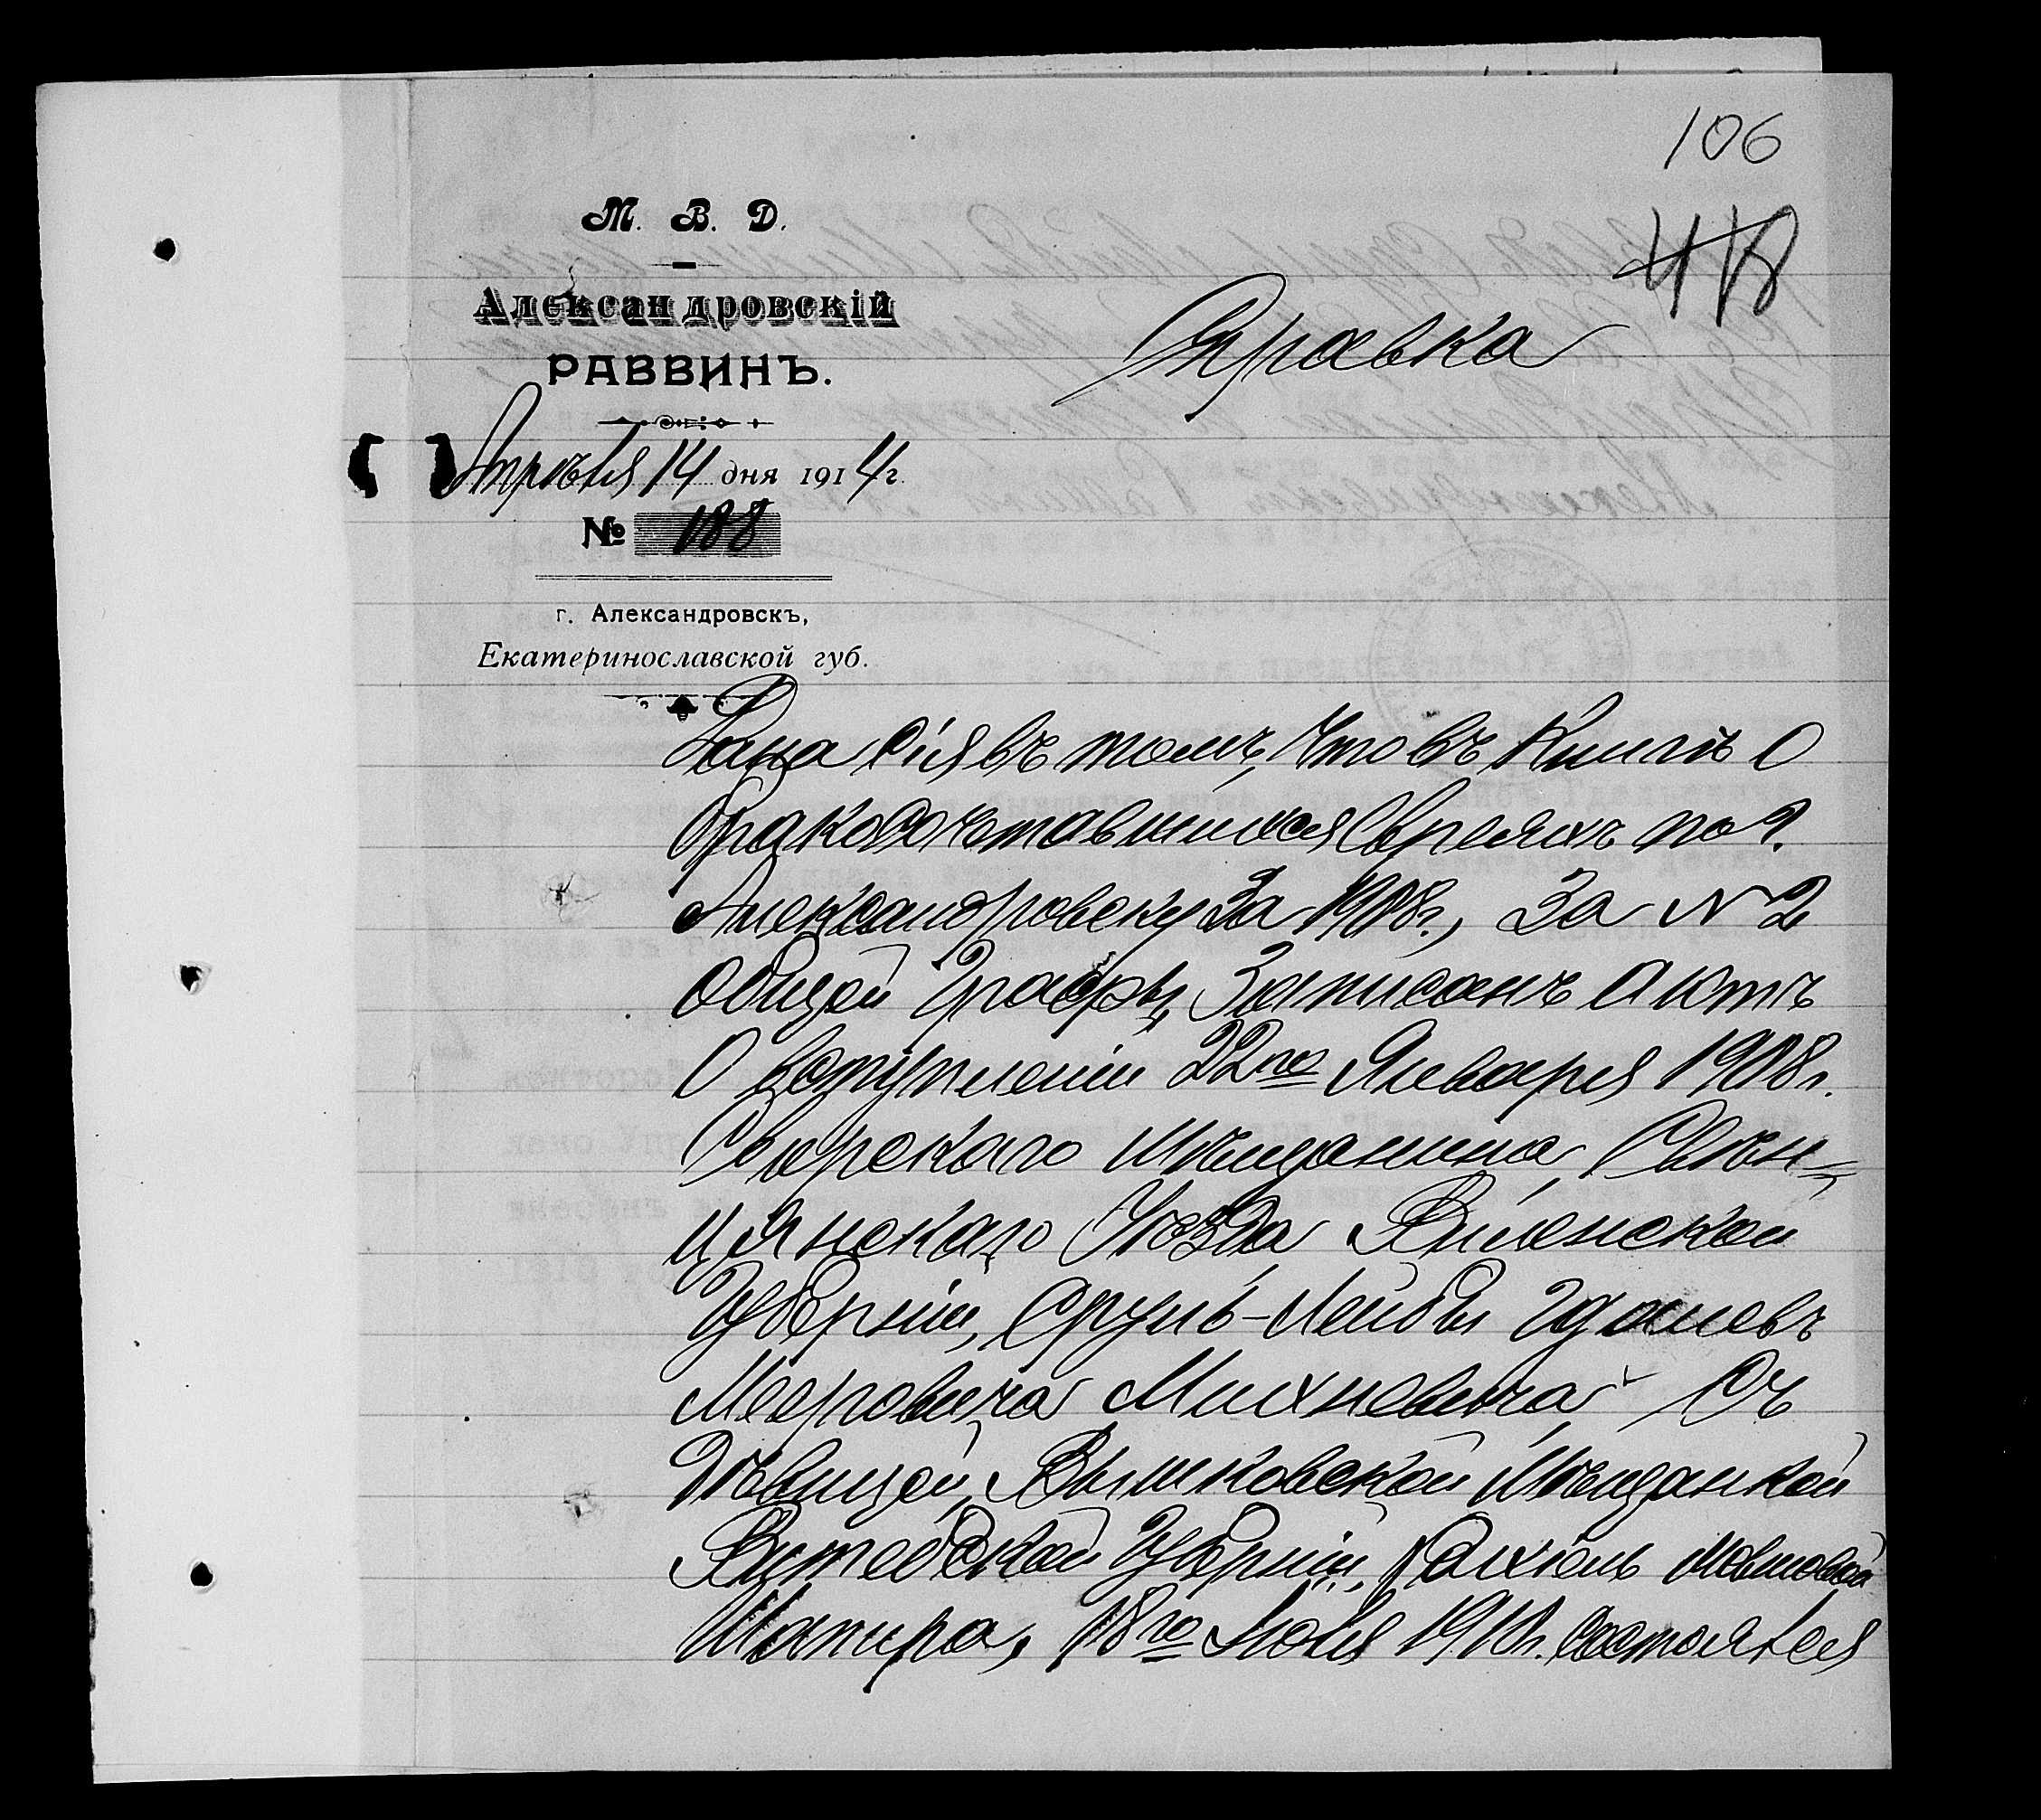 106
418
М. В. Д.
Александровскій
РАВВИНЪ.
Справка
Апрѣля 14 дня 1914 г.
№ 188
г. Александровскъ,
Екатеринославской губ.
Дана сія въ томъ, что въ книгѣ о
бракосочетавшихся евреяхъ по г.
Александровску за 1908 г., за № 2
общей графы, записанъ актъ
о вступленіи 22го Января 1908 г.
мѣщанина, Свѣн-
цянскаго уѣзда, Виленской
губерніи, Сруль-Лейбы
Мееровича Михневича съ
дѣвицей, мѣщанкой
Витебской губерніи, Рахиль Мовшовой
Шапиро, 18го Іюля 1910 г. состоялся